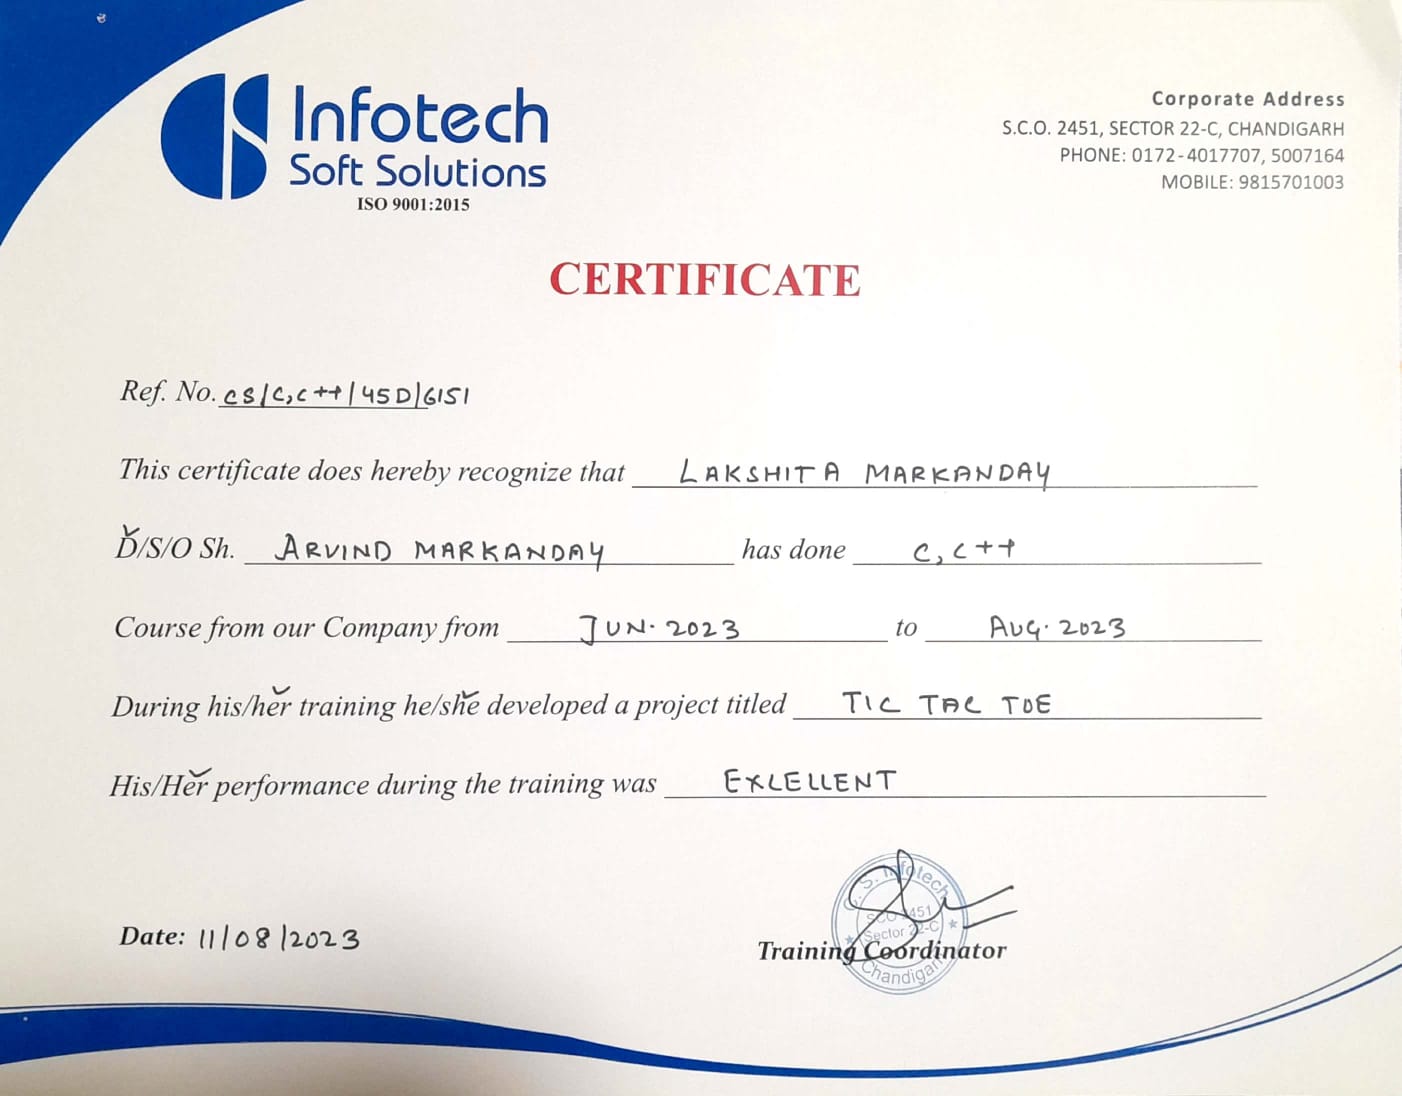 CS Infotech
Soft Solutions
ISO 9001:2015
Corporate Address
S.C.O. 2451, SECTOR 22-C, CHANDIGARH
PHONE: 0172-4017707, 5007164
MOBILE: 9815701003
CERTIFICATE
Ref. No. CS/C,C++/45D/6151
This certificate does hereby recognize that LAKSHITA MARKANDAY
D/S/O Sh. ARVIND MARKANDAY has done C, C++
Course from our Company from JUN. 2023 to AUG. 2023
During his/her training he/she developed a project titled TIC TAC TOE
His/Her performance during the training was EXLELLENT
C. S. Infotech
SCO 2451
Sector 22-C
Chandigarh
Date: 11/08/2023
Training Coordinator